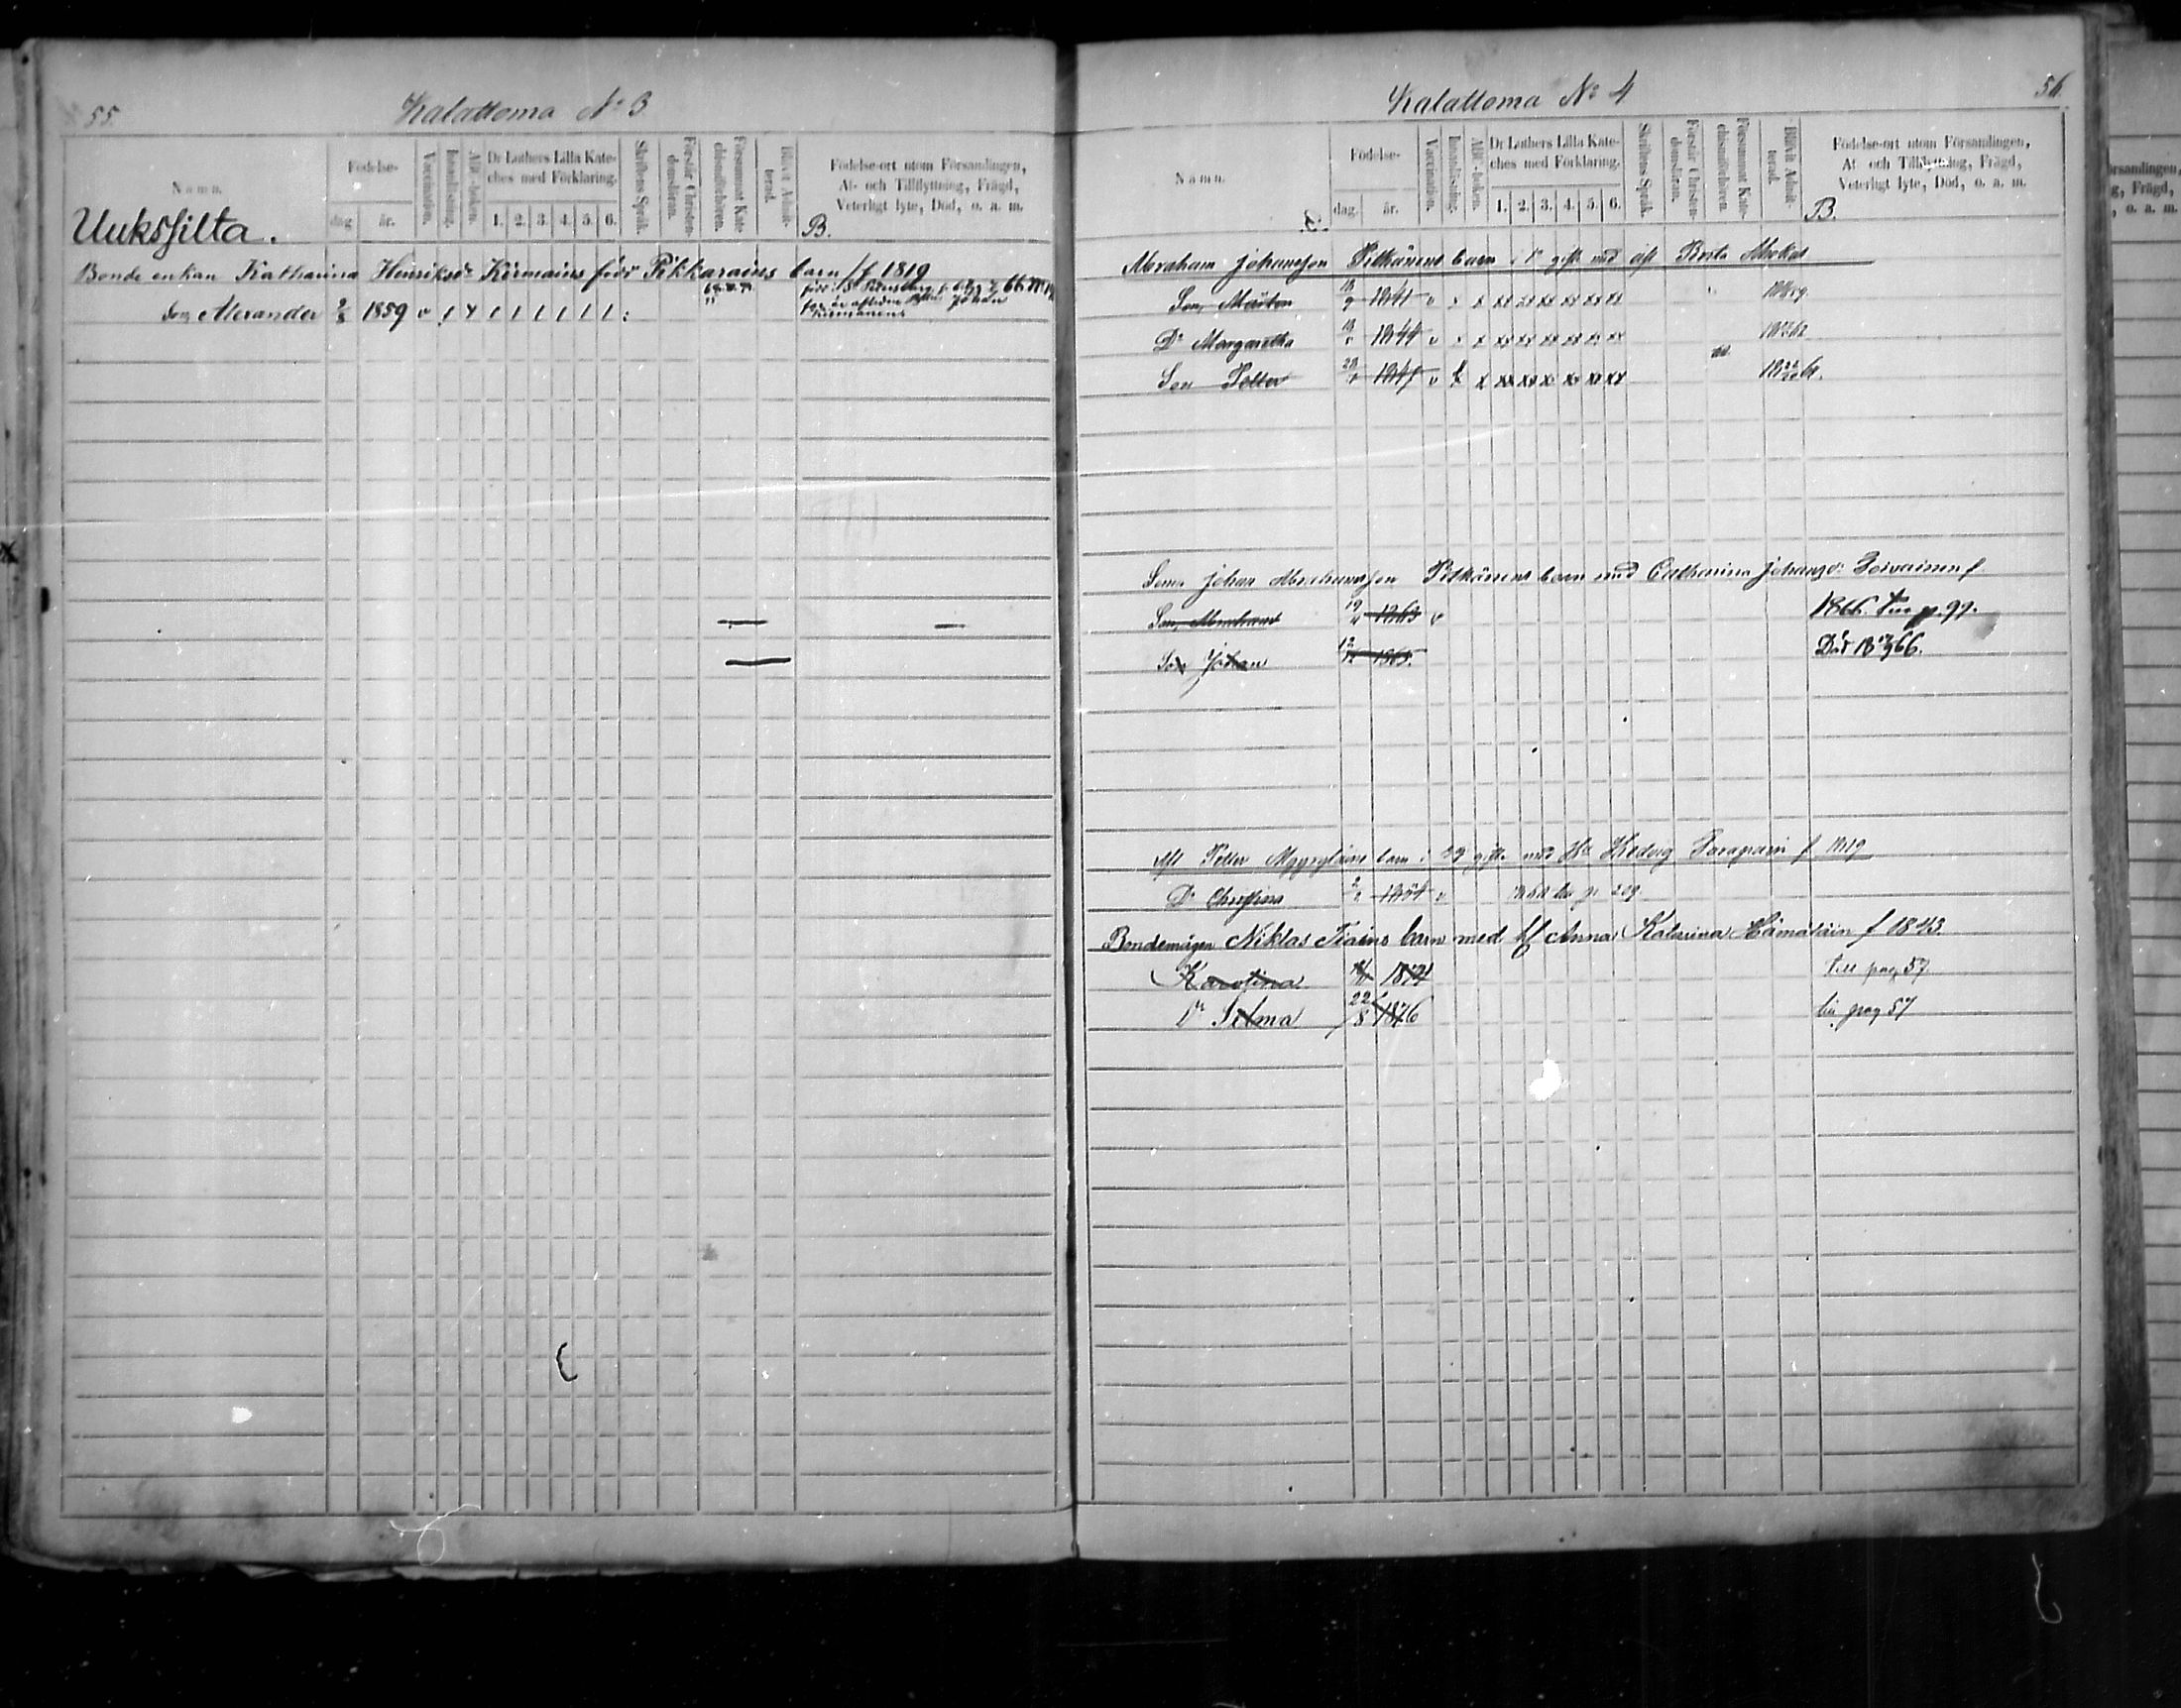 55
Kalattoma No 3
Namn.
Födelse-
dag
år.
Vaccination.
Innanläsning.
ABC-boken.
Dr Luthers Lilla Kate-
ches med Förklaring.
1. 2. 3. 4. 5. 6.
Skriftens Språk.
Förstår Christen-
domsläran.
Försummat Kate-
chismiförhören.
Blivit Admit-
terad.
Födelse-ort utom Församlingen,
Af- och Tillflyttning, Frägd,
Veterligt lyte, Död, o. a. m.
B.
Uuksujilta.
Bonde enkan Katharina Henriksdr Kirmains född Pikkarains barn f 1819
Son Alexander 2/8 1859 v
Johan
Kirmanens
Kalattoma No 4
56.
Namn.
Födelse-
dag.
år.
Vaccination.
Innanläsning.
ABC-boken.
Dr Luthers Lilla Kate-
ches med Förklaring.
1. 2. 3. 4. 5. 6.
Skriftens Språk.
Förstår Christen-
domsläran.
Försummat Kate-
chismiförhören.
Blivit Admit-
terad.
Födelse-ort utom Församlingen,
Af- och Tillflyttning, Frägd,
Veterligt lyte, Död, o. a. m.
B.
Abraham Johansson Pitkänens barn i gifte med
Son Mårten 1841 v x x xx xx xx xx xx xx
Dr Margaretha 1844 v x x xx xx xx xx xx xx
Son Petter 1847 v x xx xx xx xx xx xx
Sonen Johan Abrahamsson Pitkänens barn med Catharina Johansdr Toivainen f
Son Abraham 19/4 1863 v 1866 p. 99.
Son Johan 12 1865. Död 66.
Petter barn i gifte med Hedvig f 1819
Dr Christina v p 209
Bondemågen Niklas Tiains barn med hf Anna Katarina Hämäläin f 1843.
Karolina 1874 till pag 57
Dr Selma 22/8 1876 till pag 57